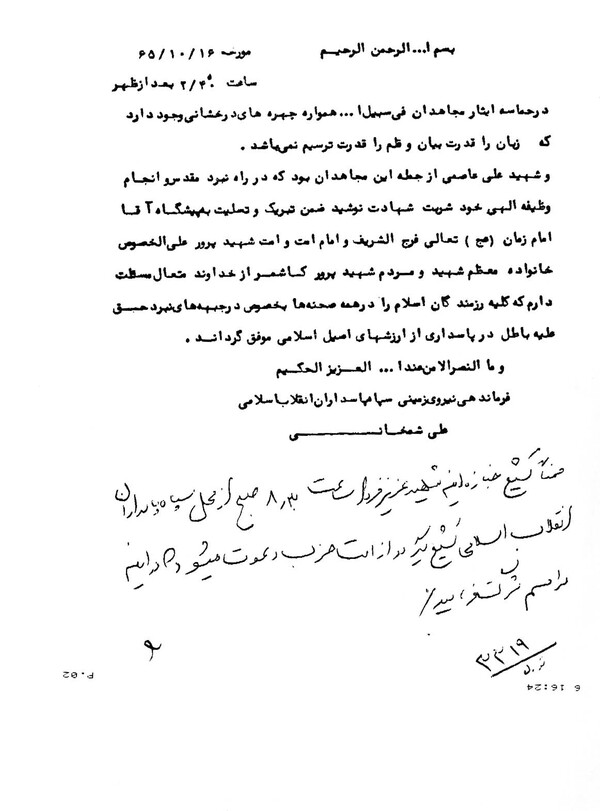 بسم ا... الرحمن الرحیم
مورخه ۶۵/۱۰/۱۶
ساعت ۲/۴۵ بعد از ظهر
در حماسه ایثار مجاهدان فی سبیل ا... همواره چهره های درخشانی وجود دارد
که زبان را قدرت بیان و قلم را قدرت ترسیم نمی باشد .
و شهید علی عاصمی از جمله این مجاهدان بود که در راه نبرد مقدس و انجام
وظیفه الهی خود شربت شهادت نوشید ضمن تبریک و تسلیت به پیشگاه آقا
امام زمان (عج) تعالی فرج الشریف و امام امت و امت شهید پرور علی الخصوص
خانواده معظم شهید و مردم شهید پرور کاشمر از خداوند متعال مسئلت
دارم که کلیه رزمندگان اسلام را در همه صحنه ها بخصوص در جبهه های نبرد حق
علیه باطل در پاسداری از ارزشهای اصیل اسلامی موفق گرداند .
و ما النصر الا من عند ا... العزیز الحکیم
فرماندهی نیروی زمینی سپاه پاسداران انقلاب اسلامی
علی شمخانی
ضمناً تشیع جنازه این شهید عزیز فردا ساعت ۸٫۳۰ صبح از محل سپاه پاسداران
انقلاب اسلامی تشیع از امت حزب دعوت میشود که در این
مراسم شرکت
۳۳۱۹
P.02
6 16:24